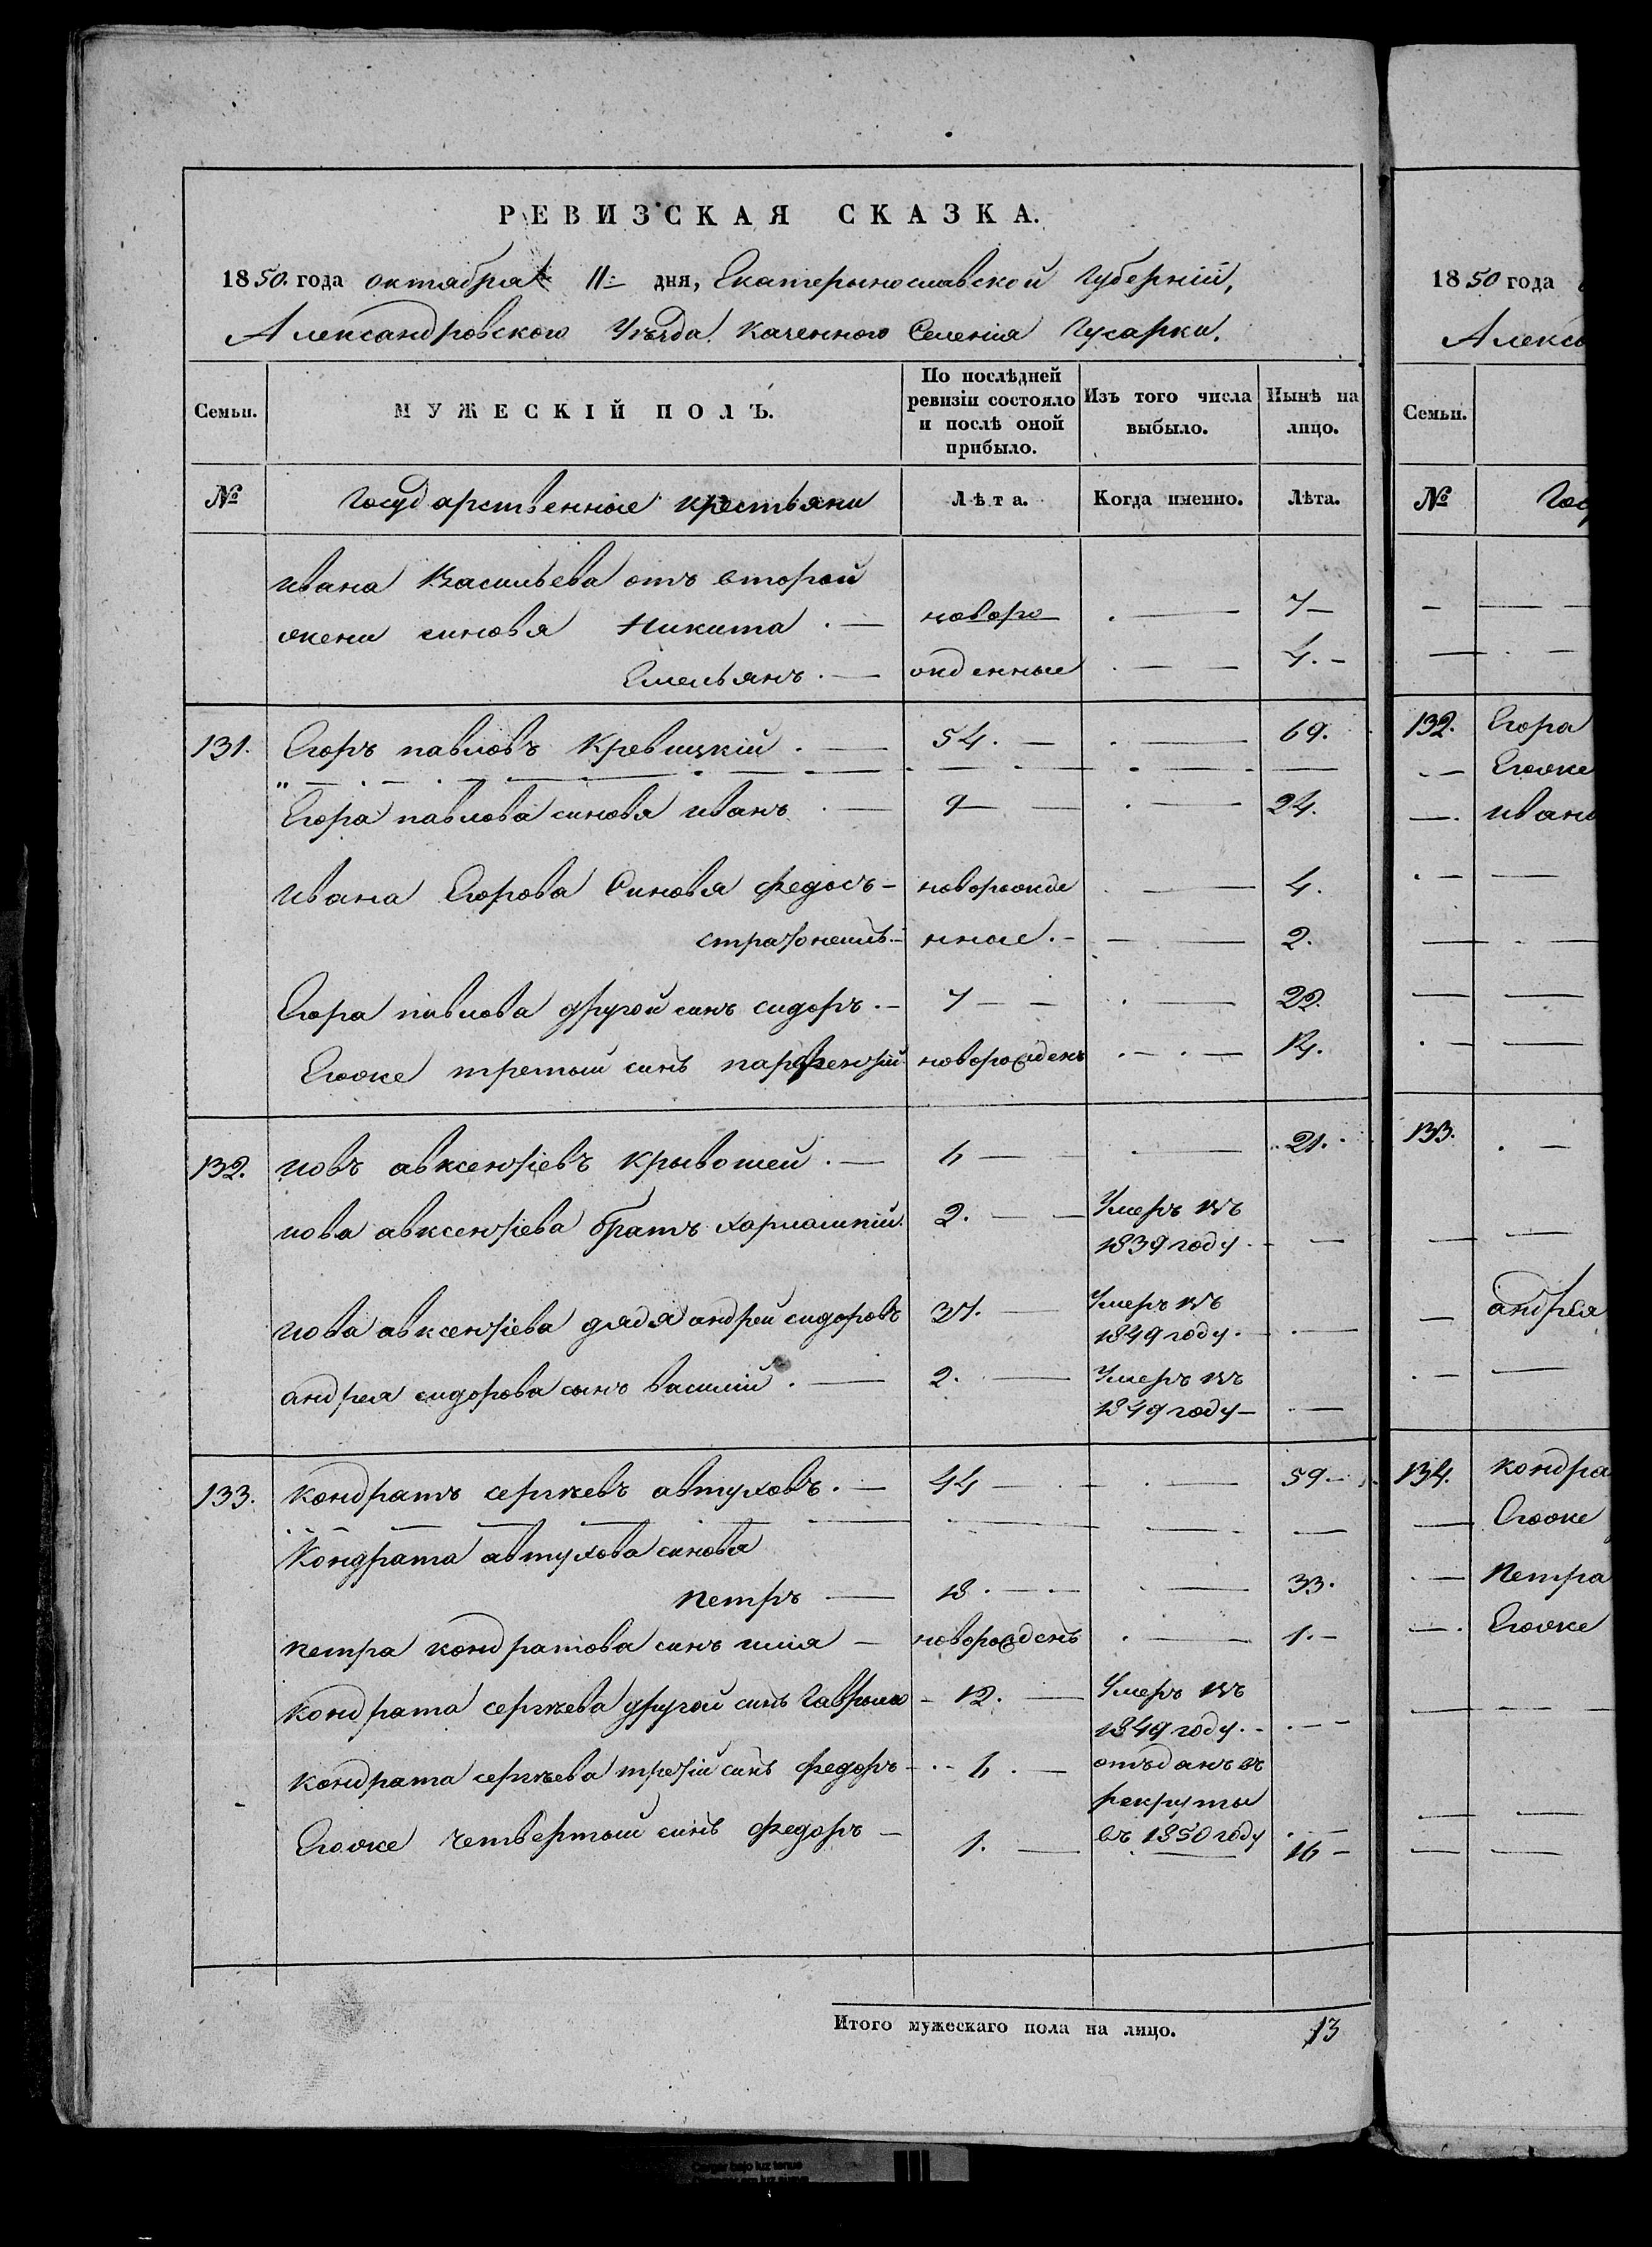 РЕВИЗСКАЯ СКАЗКА.
1850. года октабра 11 дня, Екатерынославской Губерніи,
Александровского Уѣзда Казенного Селенія Гусарки.
Семьи.
МУЖЕСКІЙ ПОЛЪ.
По послѣдней ревизіи состояло и послѣ оной прибыло.
Изъ того числа выбыло.
Нынѣ на лицо.
№ Государственные крестьяни Лѣта. Когда именно. Лѣта.
ивана Васильева отъ второй
жени синовя Никита . — новоро . — 7 —
Емельянъ . — жденные . — — 4. —
131. Егоръ павловъ Кревицкій . — 54. — . — 69.
Егора павлова синовя иванъ . — 9 — — . — 24.
ивана Егорова Синовя федосъ — новорожде . — 4.
нные. — — — 2.
Егора павлова другой синъ сидоръ. — 7 — — . — 22.
Егоже третый синъ парфентій новорожденъ . — . — 14.
132. иовъ авксентіевъ Крывошей . — 6 — — . — 21.
иова авксентіева братъ харлампій. 2. — — Умеръ въ
1839 году. — —
иова авксентіева дядя андрей сидоровъ 37. — Умеръ въ
1849 году. — . —
андрея сидорова сынъ василій . — 2. — Умеръ въ
1849 году — . —
133. Кондратъ сергѣевъ автуховъ. — 44 — — . — 59. —
Кондрата автухова синовя
петръ — 18. — — . — 33.
петра кондратова синъ илія — новорожденъ . — 1. —
Кондрата сергѣева другой синъ Гаврыло — 12. — Умеръ въ
1849 году. — . —
Кондрата сергѣева третій синъ федоръ — 6. — отъданъ въ
рекруты
въ 1850 году . —
Егоже четвертый синъ федоръ — 1. — . — 16 —
Итого мужескаго пола на лицо. 13
1850 года
Алекса
Семьи.
№ Гос
132. Егора
Егоже
ивана
133.
андрея
134. Кондра
Егоже
Петра
Егоже